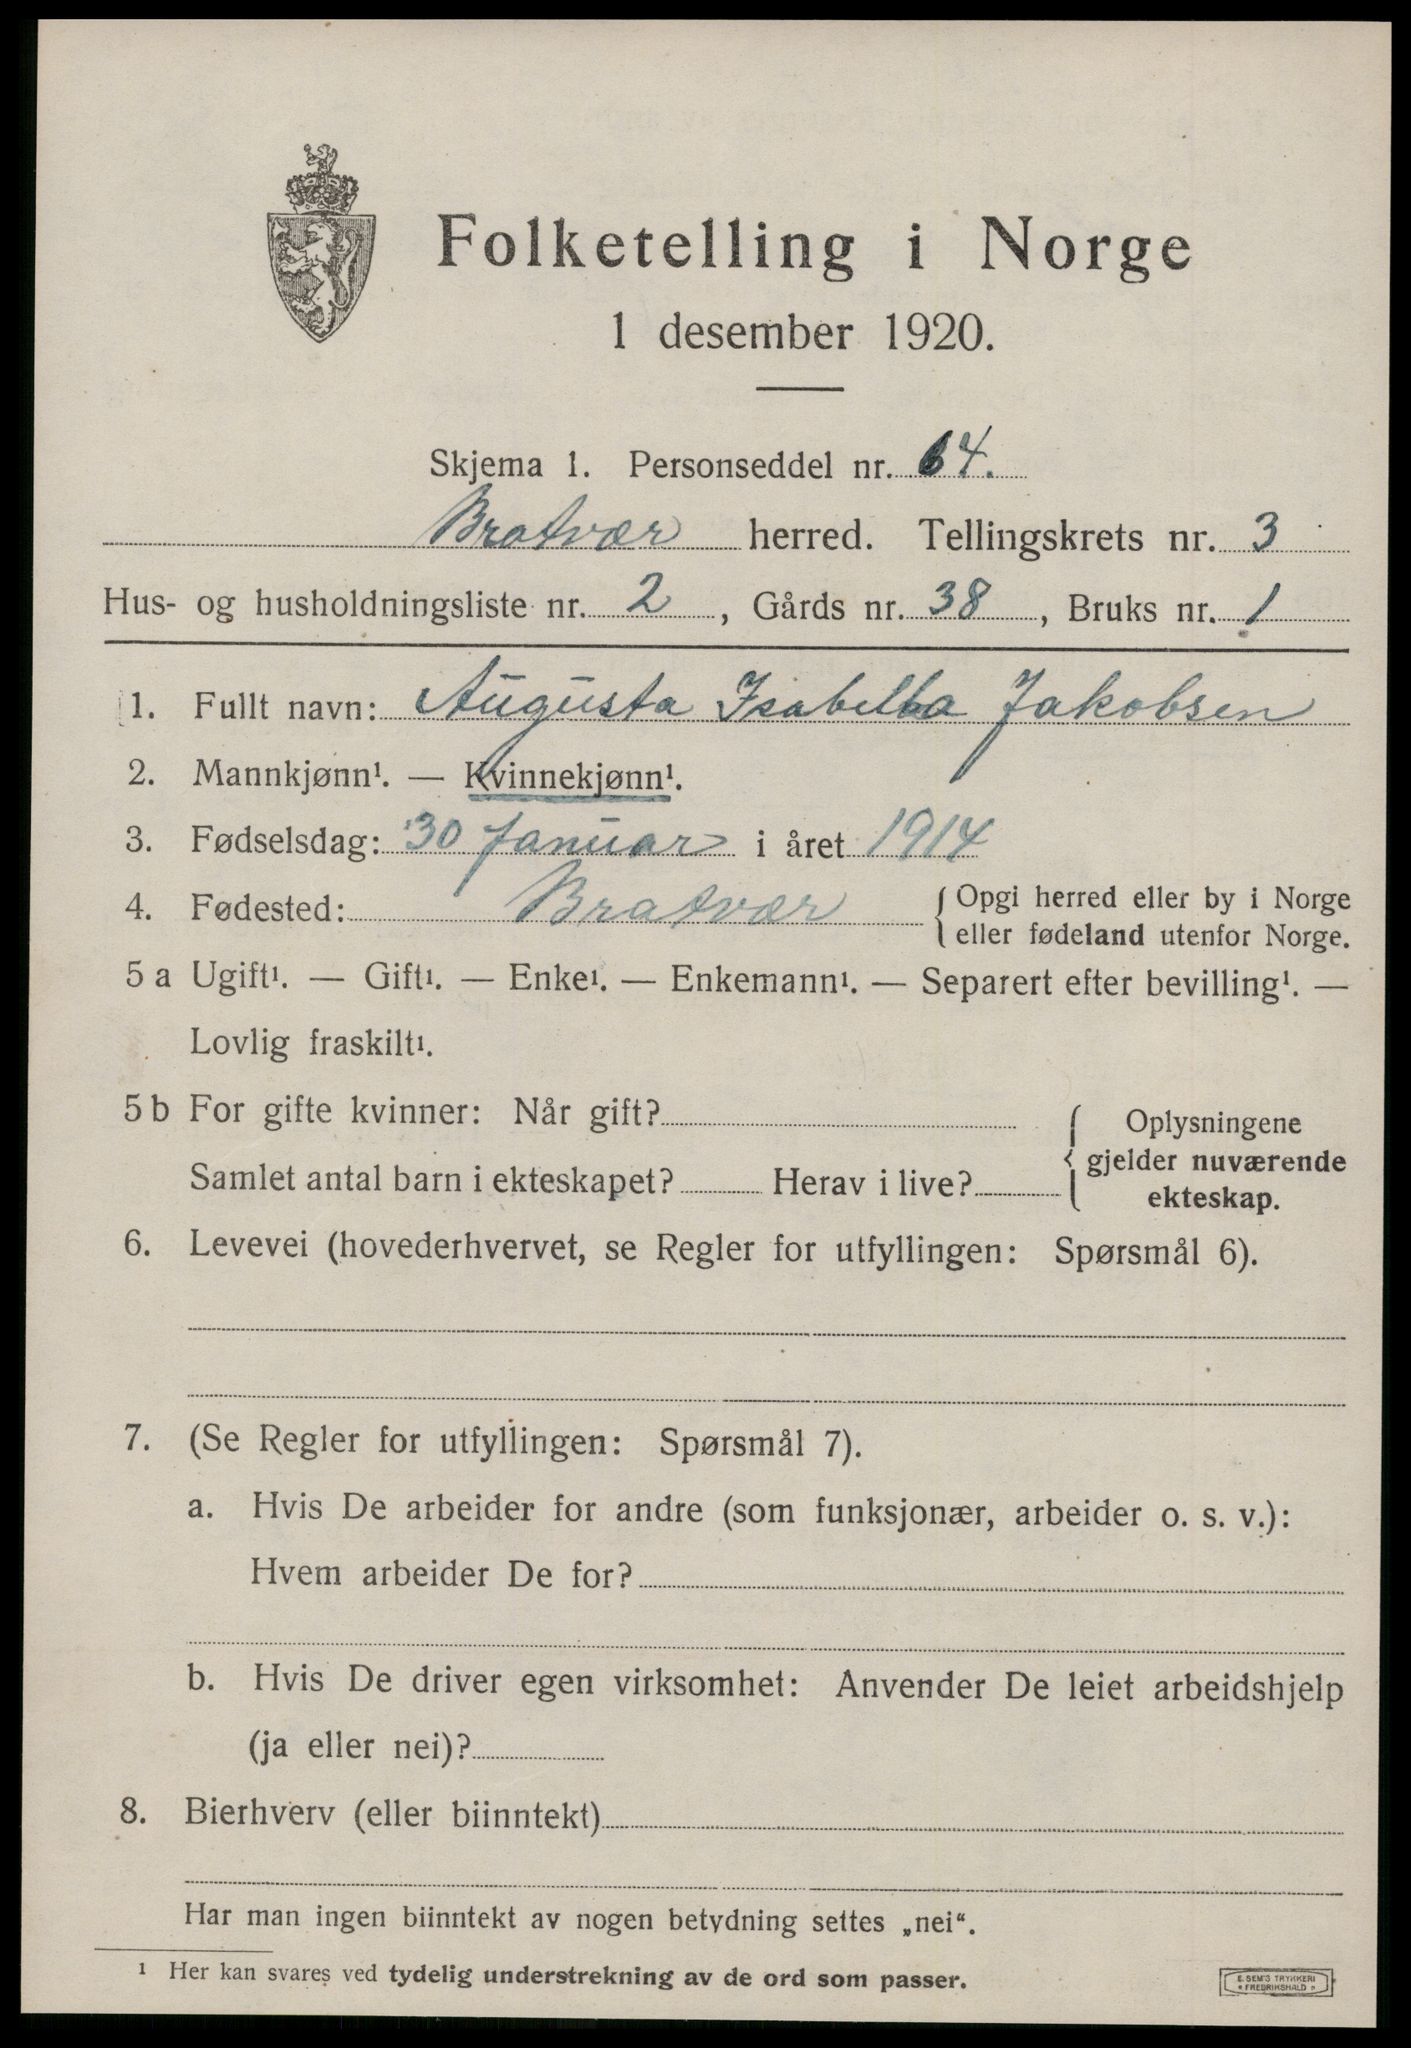 Folketelling i Norge
1 desember 1920.
Skjema 1. Personseddel nr. 64.
Bratvær herred. Tellingskrets nr. 3
Hus- og husholdningsliste nr. 2, Gårds nr. 38, Bruks nr. 1
1. Fullt navn: Augusta Isabella Jakobsen
2. Mannkjønn¹. — Kvinnekjønn¹.
3. Fødselsdag: 30 Januar i året 1914
4. Fødested: Bratvær { Opgi herred eller by i Norge
eller fødeland utenfor Norge.
5 a Ugift¹. — Gift¹. — Enke¹. — Enkemann¹. — Separert efter bevilling¹. —
Lovlig fraskilt¹.
5 b For gifte kvinner: Når gift? { Oplysningene
gjelder nuværende
Samlet antal barn i ekteskapet? Herav i live?
ekteskap.
6. Levevei (hovederhvervet, se Regler for utfyllingen: Spørsmål 6).
7. (Se Regler for utfyllingen: Spørsmål 7).
a. Hvis De arbeider for andre (som funksjonær, arbeider o. s. v.):
Hvem arbeider De for?
b. Hvis De driver egen virksomhet: Anvender De leiet arbeidshjelp
(ja eller nei)?
8. Bierhverv (eller biinntekt)
Har man ingen biinntekt av nogen betydning settes „nei“.
¹ Her kan svares ved tydelig understrekning av de ord som passer.
E. SEM'S TRYKKERI
FREDRIKSHALD